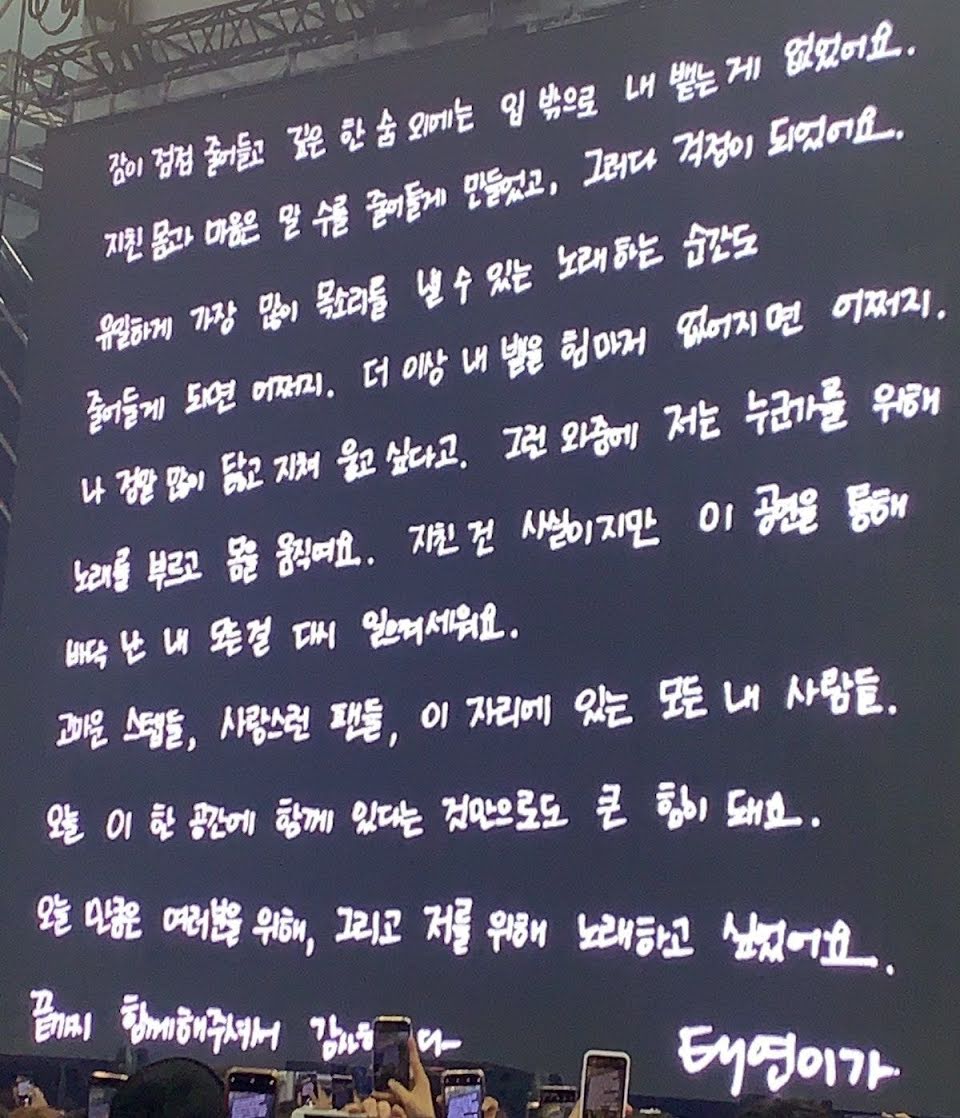 잠이 점점 줄어들고 깊은 한 숨 외에는 입 밖으로 내 뱉는 게 없었어요.
지친 몸과 마음은 말 수를 줄어들게 만들었고, 그러다 걱정이 되었어요.
유일하게 가장 많이 목소리를 낼 수 있는 노래하는 순간도
줄어들게 되면 어쩌지. 더 이상 내 뱉을 힘마저 없어지면 어쩌지.
나 정말 많이 닳고 지쳐 울고 싶다고. 그런 와중에 저는 누군가를 위해
노래를 부르고 몸을 움직여요. 지친 건 사실이지만 이 공연을 통해
바닥 난 내 모든걸 다시 일으켜세워요.
고마운 스탭들, 사랑스런 팬들, 이 자리에 있는 모든 내 사람들.
오늘 이 한 공간에 함께 있다는 것만으로도 큰 힘이 돼요.
오늘 만큼은 여러분을 위해, 그리고 저를 위해 노래하고 싶었어요.
끝까지 함께해주셔서
태연이가